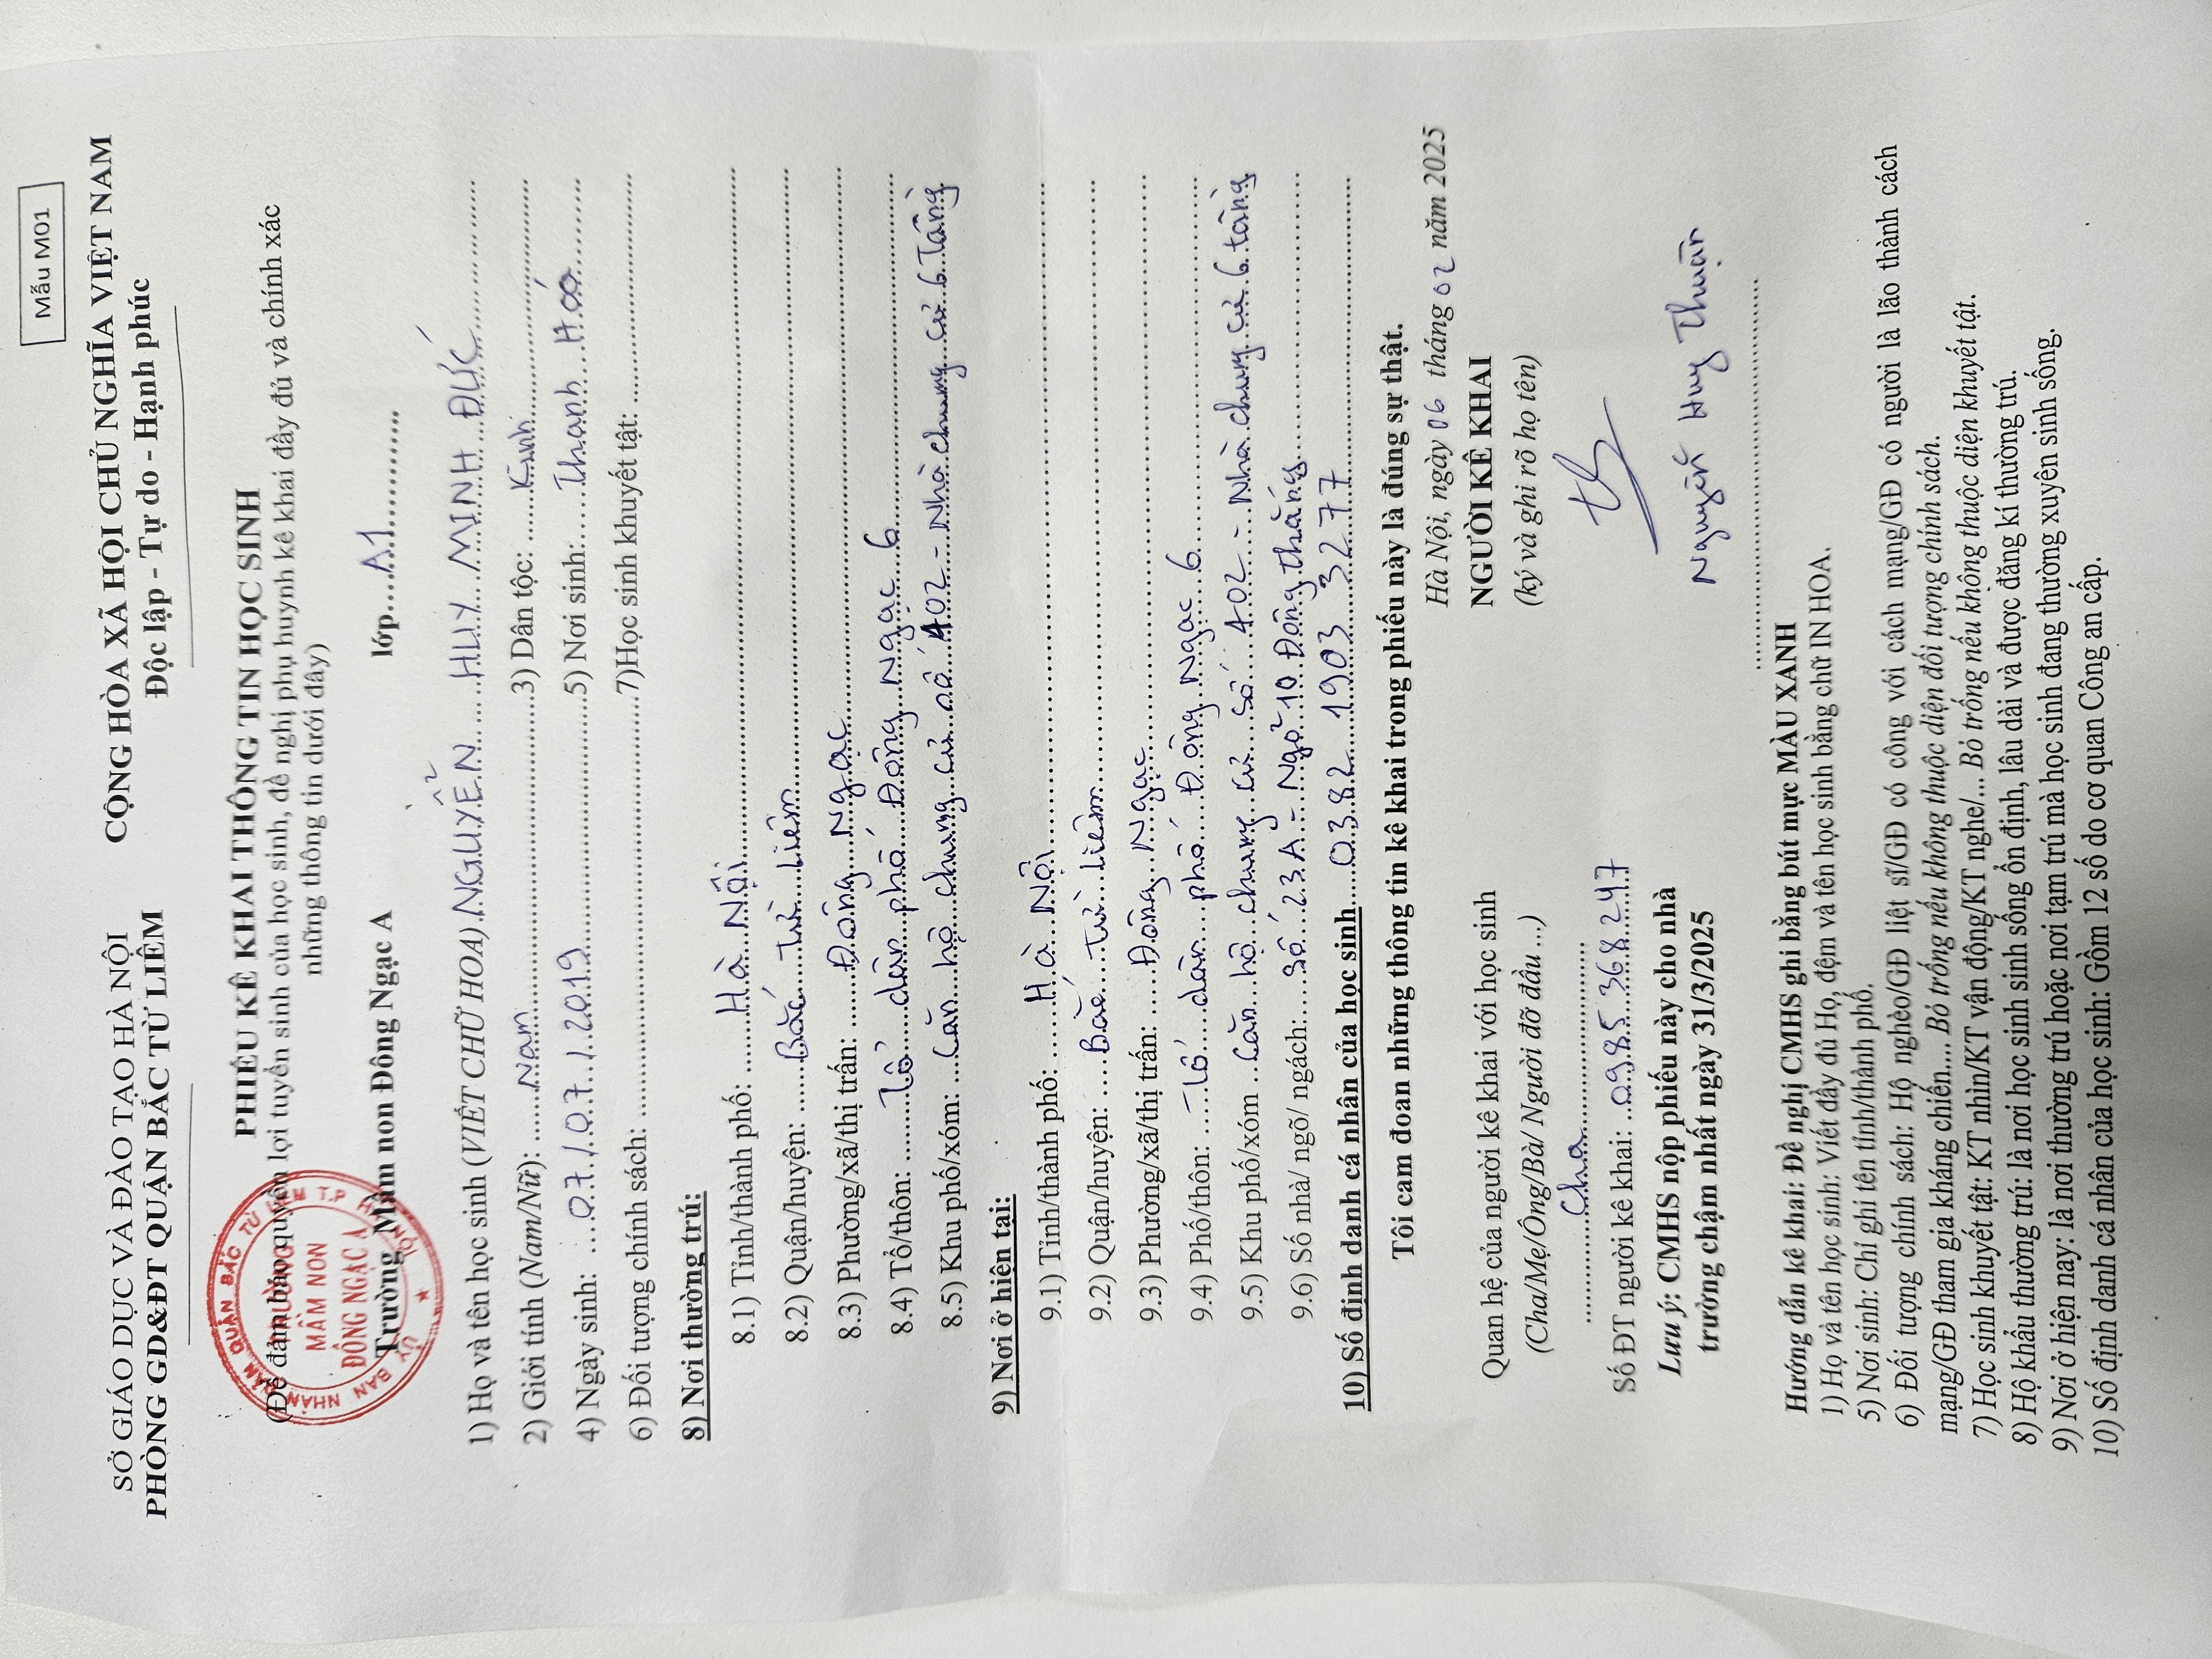 Mẫu M01
SỞ GIÁO DỤC VÀ ĐÀO TẠO HÀ NỘI
PHÒNG GD&ĐT QUẬN BẮC TỪ LIÊM
CỘNG HÒA XÃ HỘI CHỦ NGHĨA VIỆT NAM
Độc lập - Tự do - Hạnh phúc
ỦY BAN NHÂN DÂN QUẬN BẮC TỪ LIÊM T.P HÀ NỘI
TRƯỜNG
MẦM NON
ĐÔNG NGẠC A
PHIẾU KÊ KHAI THÔNG TIN HỌC SINH
(Để đảm bảo quyền lợi tuyển sinh của học sinh, đề nghị phụ huynh kê khai đầy đủ và chính xác
những thông tin dưới đây)
Trường Mầm non Đông Ngạc A lớp....A1............
1) Họ và tên học sinh (VIẾT CHỮ HOA) NGUYỄN HUY MINH ĐỨC
2) Giới tính (Nam/Nữ): Nam 3) Dân tộc: Kinh
4) Ngày sinh: 07/07/2019 5) Nơi sinh: Thanh Hoá
6) Đối tượng chính sách: ........ 7)Học sinh khuyết tật: ........
8) Nơi thường trú:
8.1) Tỉnh/thành phố: Hà Nội
8.2) Quận/huyện: Bắc Từ Liêm
8.3) Phường/xã/thị trấn: Đông Ngạc
8.4) Tổ/thôn: Tổ dân phố Đông Ngạc 6
8.5) Khu phố/xóm: Căn hộ chung cư số 402 - Nhà chung cư 6 Tầng
9) Nơi ở hiện tại:
9.1) Tỉnh/thành phố: Hà Nội
9.2) Quận/huyện: Bắc Từ Liêm
9.3) Phường/xã/thị trấn: Đông Ngạc
9.4) Phố/thôn: Tổ dân phố Đông Ngạc 6
9.5) Khu phố/xóm Căn hộ chung cư số 402 - Nhà chung cư 6 tầng
9.6) Số nhà/ ngõ/ ngách: Số 23A - Ngõ 10 Đông Thắng
10) Số định danh cá nhân của học sinh 0382 1903 3277
Tôi cam đoan những thông tin kê khai trong phiếu này là đúng sự thật.
Hà Nội, ngày 06 tháng 02 năm 2025
Quan hệ của người kê khai với học sinh
(Cha/Mẹ/Ông/Bà/ Người đỡ đầu ...)
Cha
Số ĐT người kê khai: 0985 368 247
Lưu ý: CMHS nộp phiếu này cho nhà
trường chậm nhất ngày 31/3/2025
NGƯỜI KÊ KHAI
(ký và ghi rõ họ tên)
Nguyễn Huy Thuận
Hướng dẫn kê khai: Đề nghị CMHS ghi bằng bút mực MÀU XANH
1) Họ và tên học sinh: Viết đầy đủ Họ, đệm và tên học sinh bằng chữ IN HOA.
5) Nơi sinh: Chỉ ghi tên tỉnh/thành phố.
6) Đối tượng chính sách: Hộ nghèo/GĐ liệt sĩ/GĐ có công với cách mạng/GĐ có người là lão thành cách
mạng/GĐ tham gia kháng chiến.... Bỏ trống nếu không thuộc diện đối tượng chính sách.
7) Học sinh khuyết tật: KT nhìn/KT vận động/KT nghe/... Bỏ trống nếu không thuộc diện khuyết tật.
8) Hộ khẩu thường trú: là nơi học sinh sinh sống ổn định, lâu dài và được đăng kí thường trú.
9) Nơi ở hiện nay: là nơi thường trú hoặc nơi tạm trú mà học sinh đang thường xuyên sinh sống.
10) Số định danh cá nhân của học sinh: Gồm 12 số do cơ quan Công an cấp.